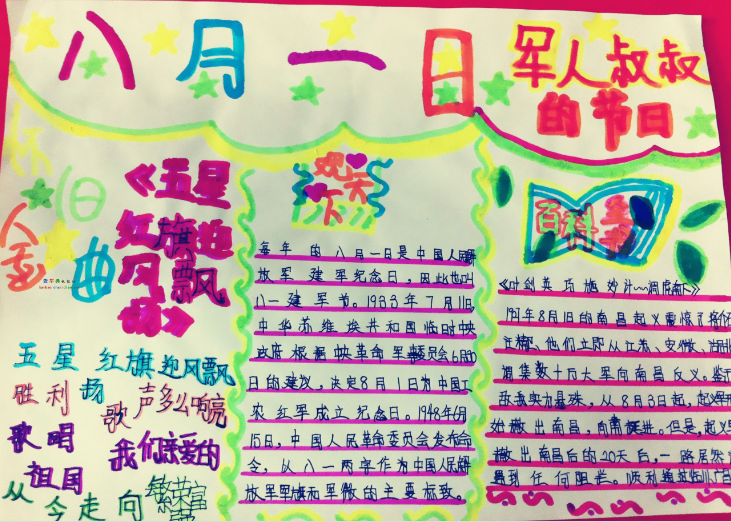 八月一日
军人叔叔
的节日
怀旧
金曲
《五星
红旗迎
风飘
扬》
五星 红旗迎风飘
扬
胜利 歌声多么响亮
歌唱 我们亲爱的
祖国
从今走向 繁荣富
观天
下
每年的八月一日是中国人民解
放军建军纪念日,因此也叫
八一建军节。1933年7月11日,
中华苏维埃共和国临时中央
政府根据中央革命军事委员会6月30
日的建议,决定8月1日为中国工
农红军成立纪念日。1948年6月
15日,中国人民革命委员会发布命
令,从八一两字作为中国人民解
放军军旗和军徽的主要标致。
百科
《叶剑英巧施妙计一调虎
8月1日的南昌起义震惊了
他们立即从江苏、安徽、湖
调集数十万大军向南昌反义,鉴于
敌我实力悬殊,从8月3日起,起义
始撤出南昌,向南挺进。但是,起义
撤出南昌后的20天后,一路居然
遇到任何阻拦。